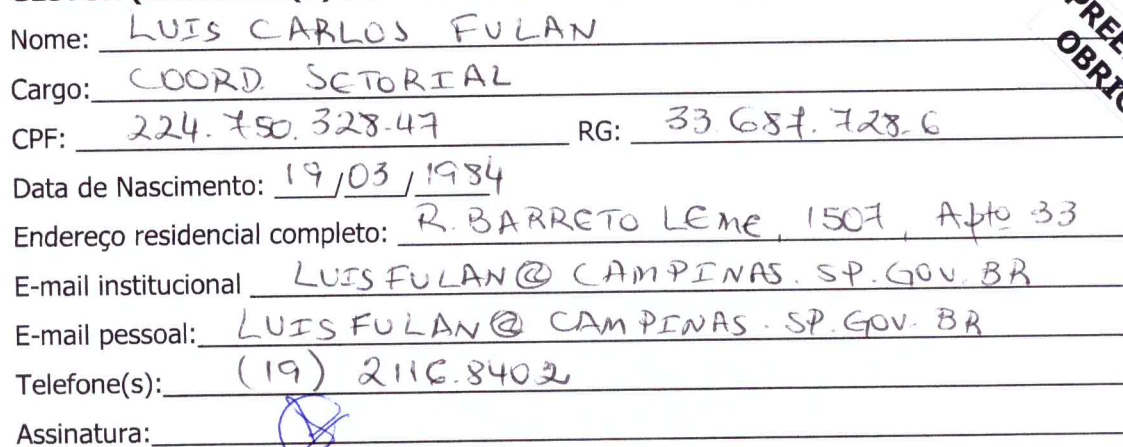 Nome: LUIS CARLOS FULAN
Cargo: COORD. SETORIAL
CPF: 224.750.328-47 RG: 33.687.728-6
Data de Nascimento: 19/03/1984
Endereço residencial completo: R. BARRETO LEME, 1507, Apto 33
E-mail institucional LUISFULAN@CAMPINAS.SP.GOV.BR
E-mail pessoal: LUISFULAN@CAMPINAS.SP.GOV.BR
Telefone(s): (19) 2116.8402
Assinatura: